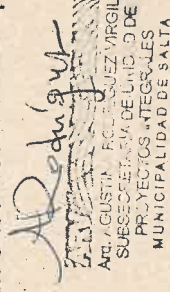 ARodríguez
Arq. AGUSTINA RODRIGUEZ VIRGIL
SUBSECRETARIA DE UNIDAD DE
PROYECTOS INTEGRALES
MUNICIPALIDAD DE SALTA